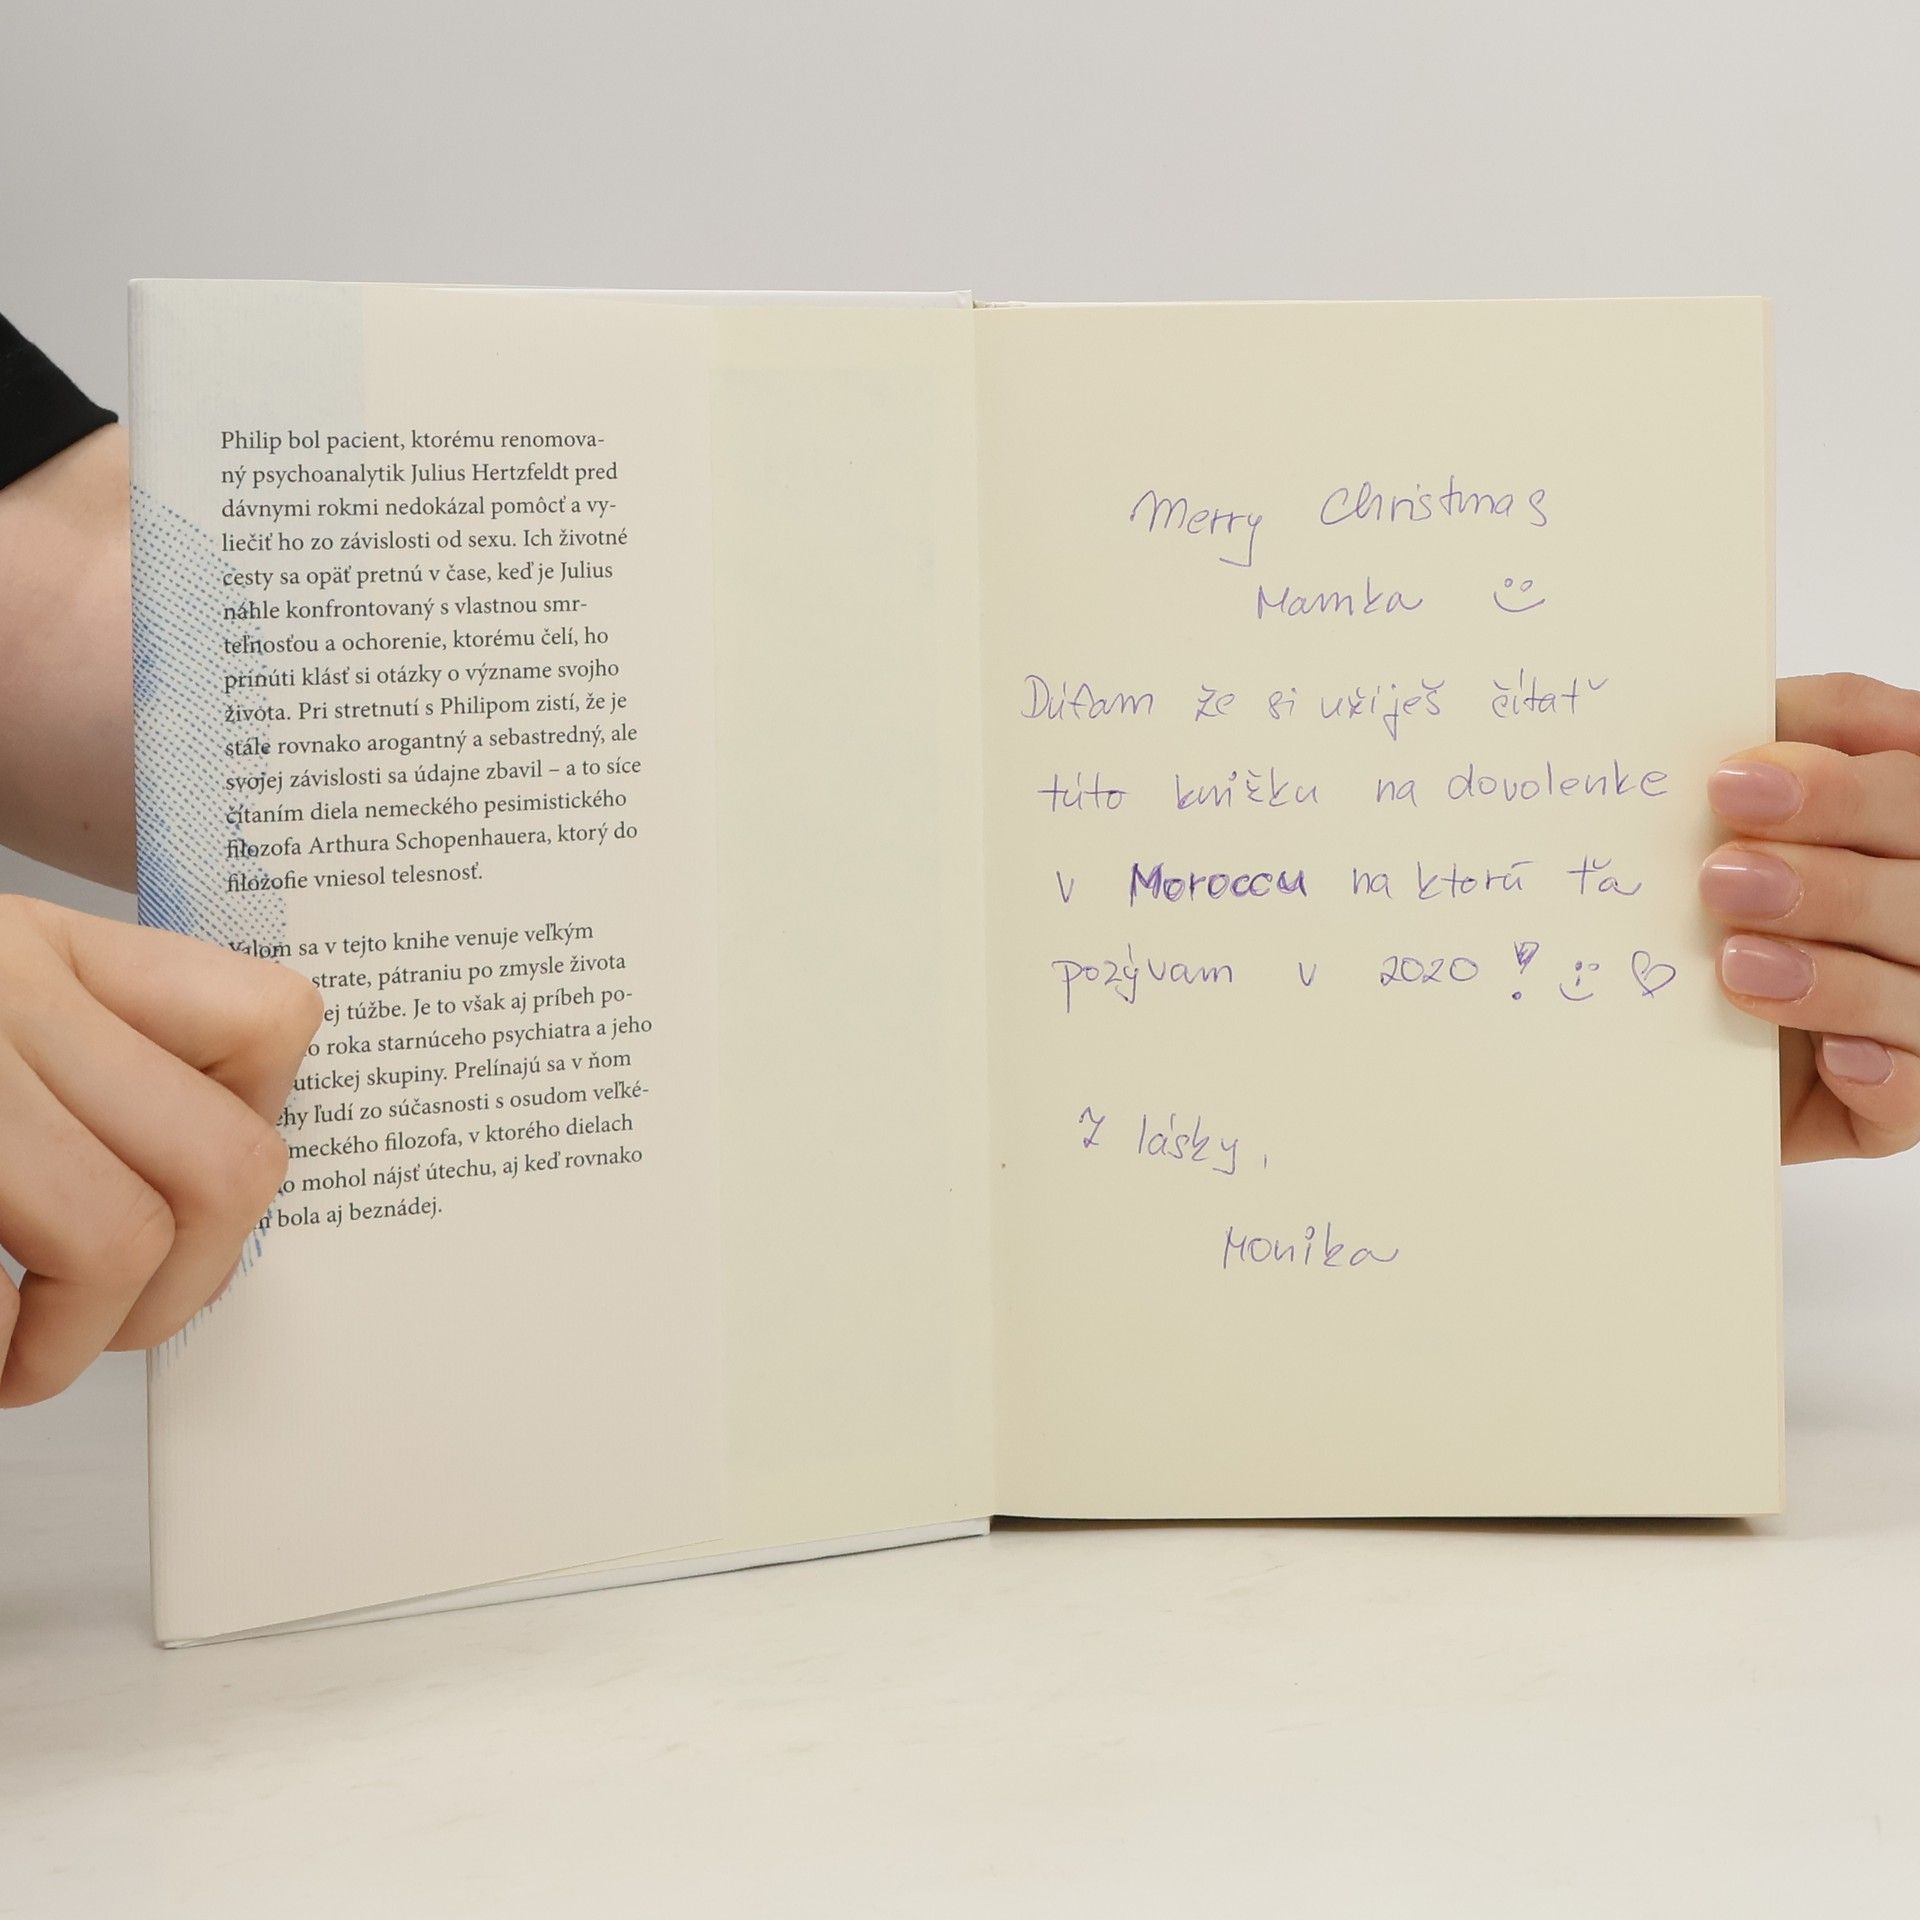 Philip bol pacient, ktorému renomova-
ný psychoanalytik Julius Hertzfeldt pred
dávnymi rokmi nedokázal pomôcť a vy-
liečiť ho zo závislosti od sexu. Ich životné
cesty sa opäť pretnú v čase, keď je Julius
náhle konfrontovaný s vlastnou smr-
teľnosťou a ochorenie, ktorému čelí, ho
prinúti klásť si otázky o význame svojho
života. Pri stretnutí s Philipom zistí, že je
stále rovnako arogantný a sebastredný, ale
svojej závislosti sa údajne zbavil – a to síce
čítaním diela nemeckého pesimistického
filozofa Arthura Schopenhauera, ktorý do
filozofie vniesol telesnosť.
Yalom sa v tejto knihe venuje veľkým
strate, pátraniu po zmysle života
ej túžbe. Je to však aj príbeh po-
o roka starnúceho psychiatra a jeho
utickej skupiny. Prelínajú sa v ňom
hy ľudí zo súčasnosti s osudom veľké-
meckého filozofa, v ktorého dielach
o mohol nájsť útechu, aj keď rovnako
bola aj beznádej.
Merry Christmas
Mamka
Dúfam že si užiješ čítať
túto knižku na dovolenke
v Moroccu na ktorú ťa
pozývam v 2020 !
Z lásky,
Monika